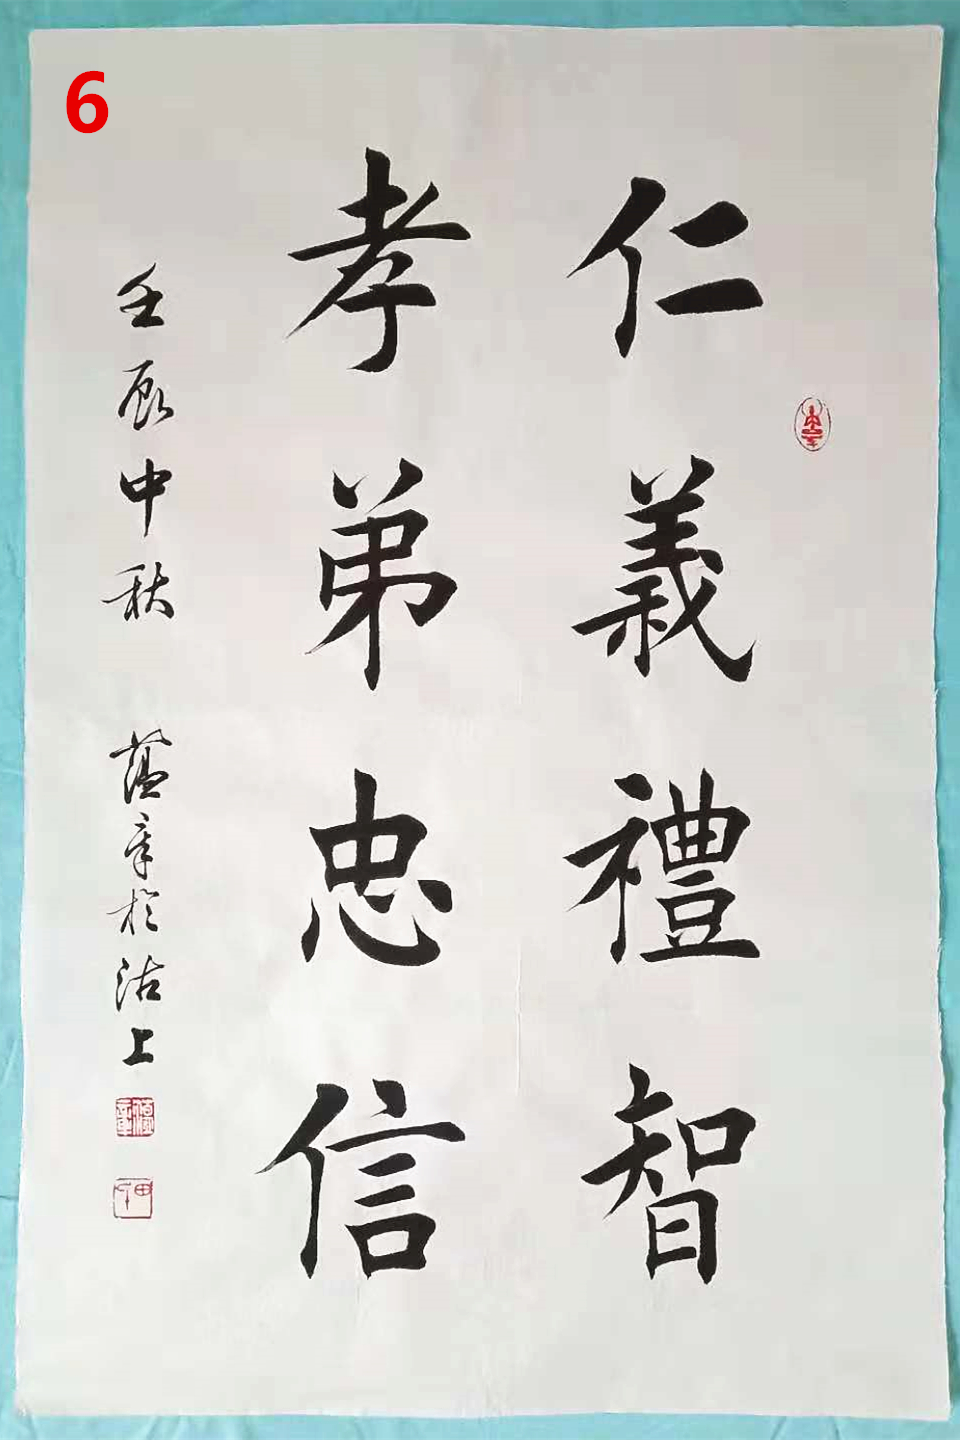 6
仁義禮智
孝弟忠信
壬辰中秋 蕴章於沽上